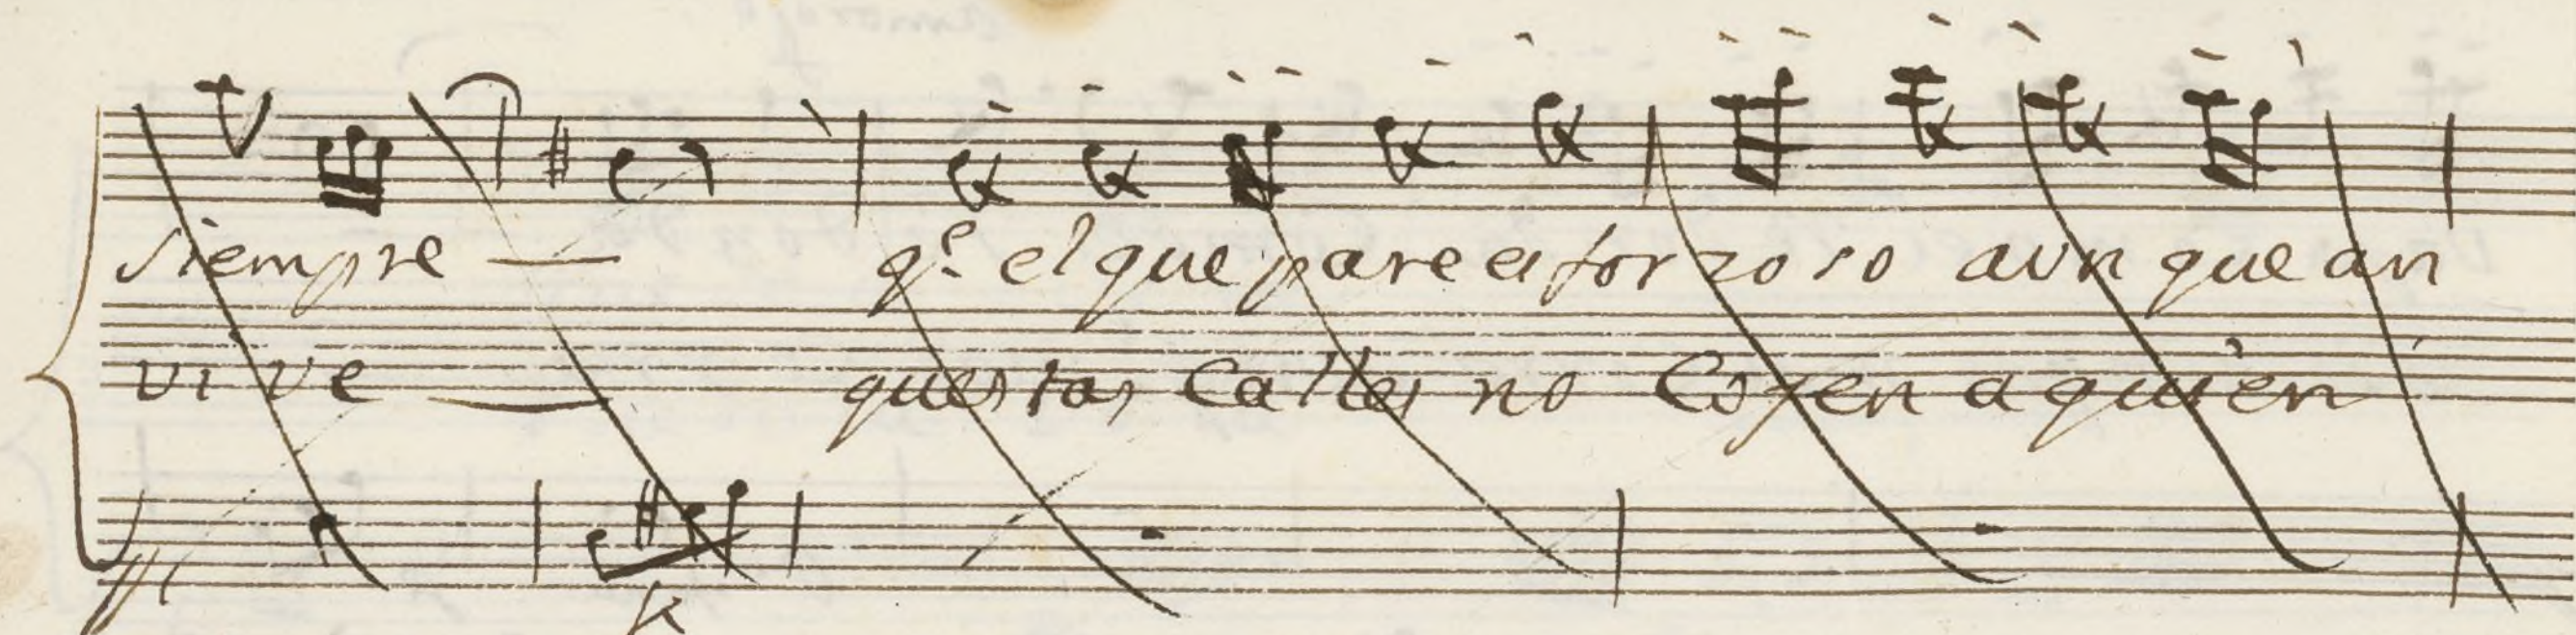 siempre — q.e el que pare es forzoso aunque an
vive — questas Calles no Cogen a quien